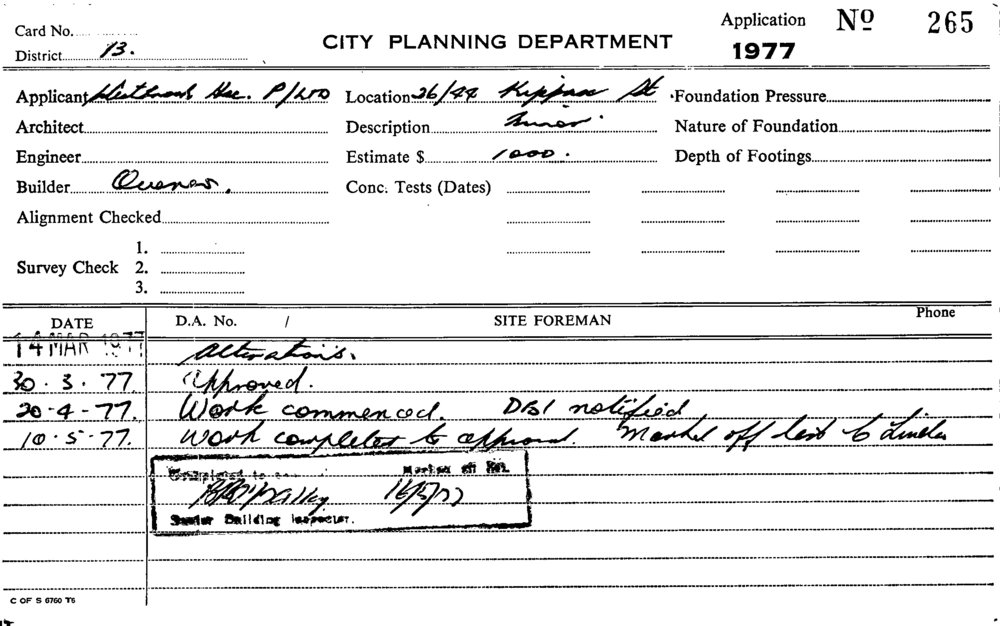 Card No.
District 13.
CITY PLANNING DEPARTMENT
Application Nº 265
1977
Applicant Hse. P/LTD
Location 26/44 Kippax St
Foundation Pressure
Architect
Description Minor.
Nature of Foundation
Engineer
Estimate $ 1000.
Depth of Footings
Builder Owner.
Conc. Tests (Dates)
Alignment Checked
Survey Check
1.
2.
3.
DATE
D.A. No. /
SITE FOREMAN
Phone
14 MAR 1977 Alterations.
30.3.77. Approved.
20-4-77. Work commenced. DBI notified
10.5.77. Work completed to approval. Marked off
Completed to Marked off
16/5/77
Senior Building Inspector.
C OF S 6760 T6